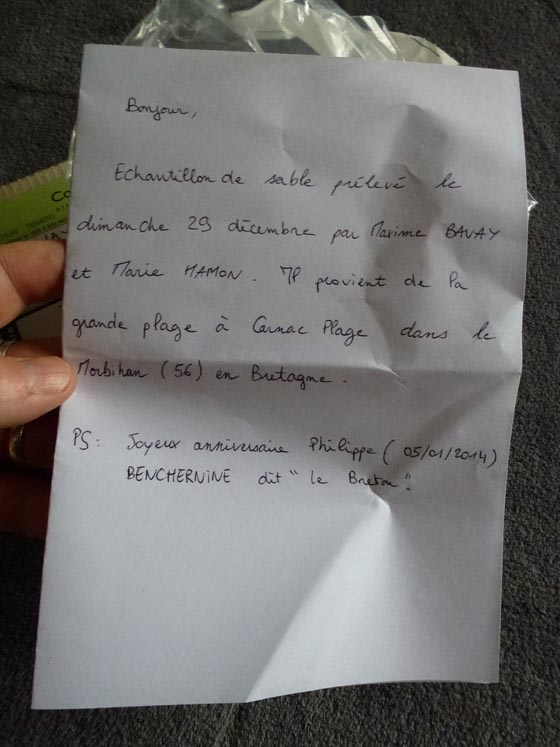 Bonjour,
Echantillon de sable prélevé le
dimanche 29 décembre par Maxime BAVAY
et Marie HAMON. Il provient de la
grande plage à Carnac Plage dans le
Morbihan (56) en Bretagne.
PS: Joyeux anniversaire Philippe (05/01/2014)
BENCHERNINE dit "le Breton".
Co